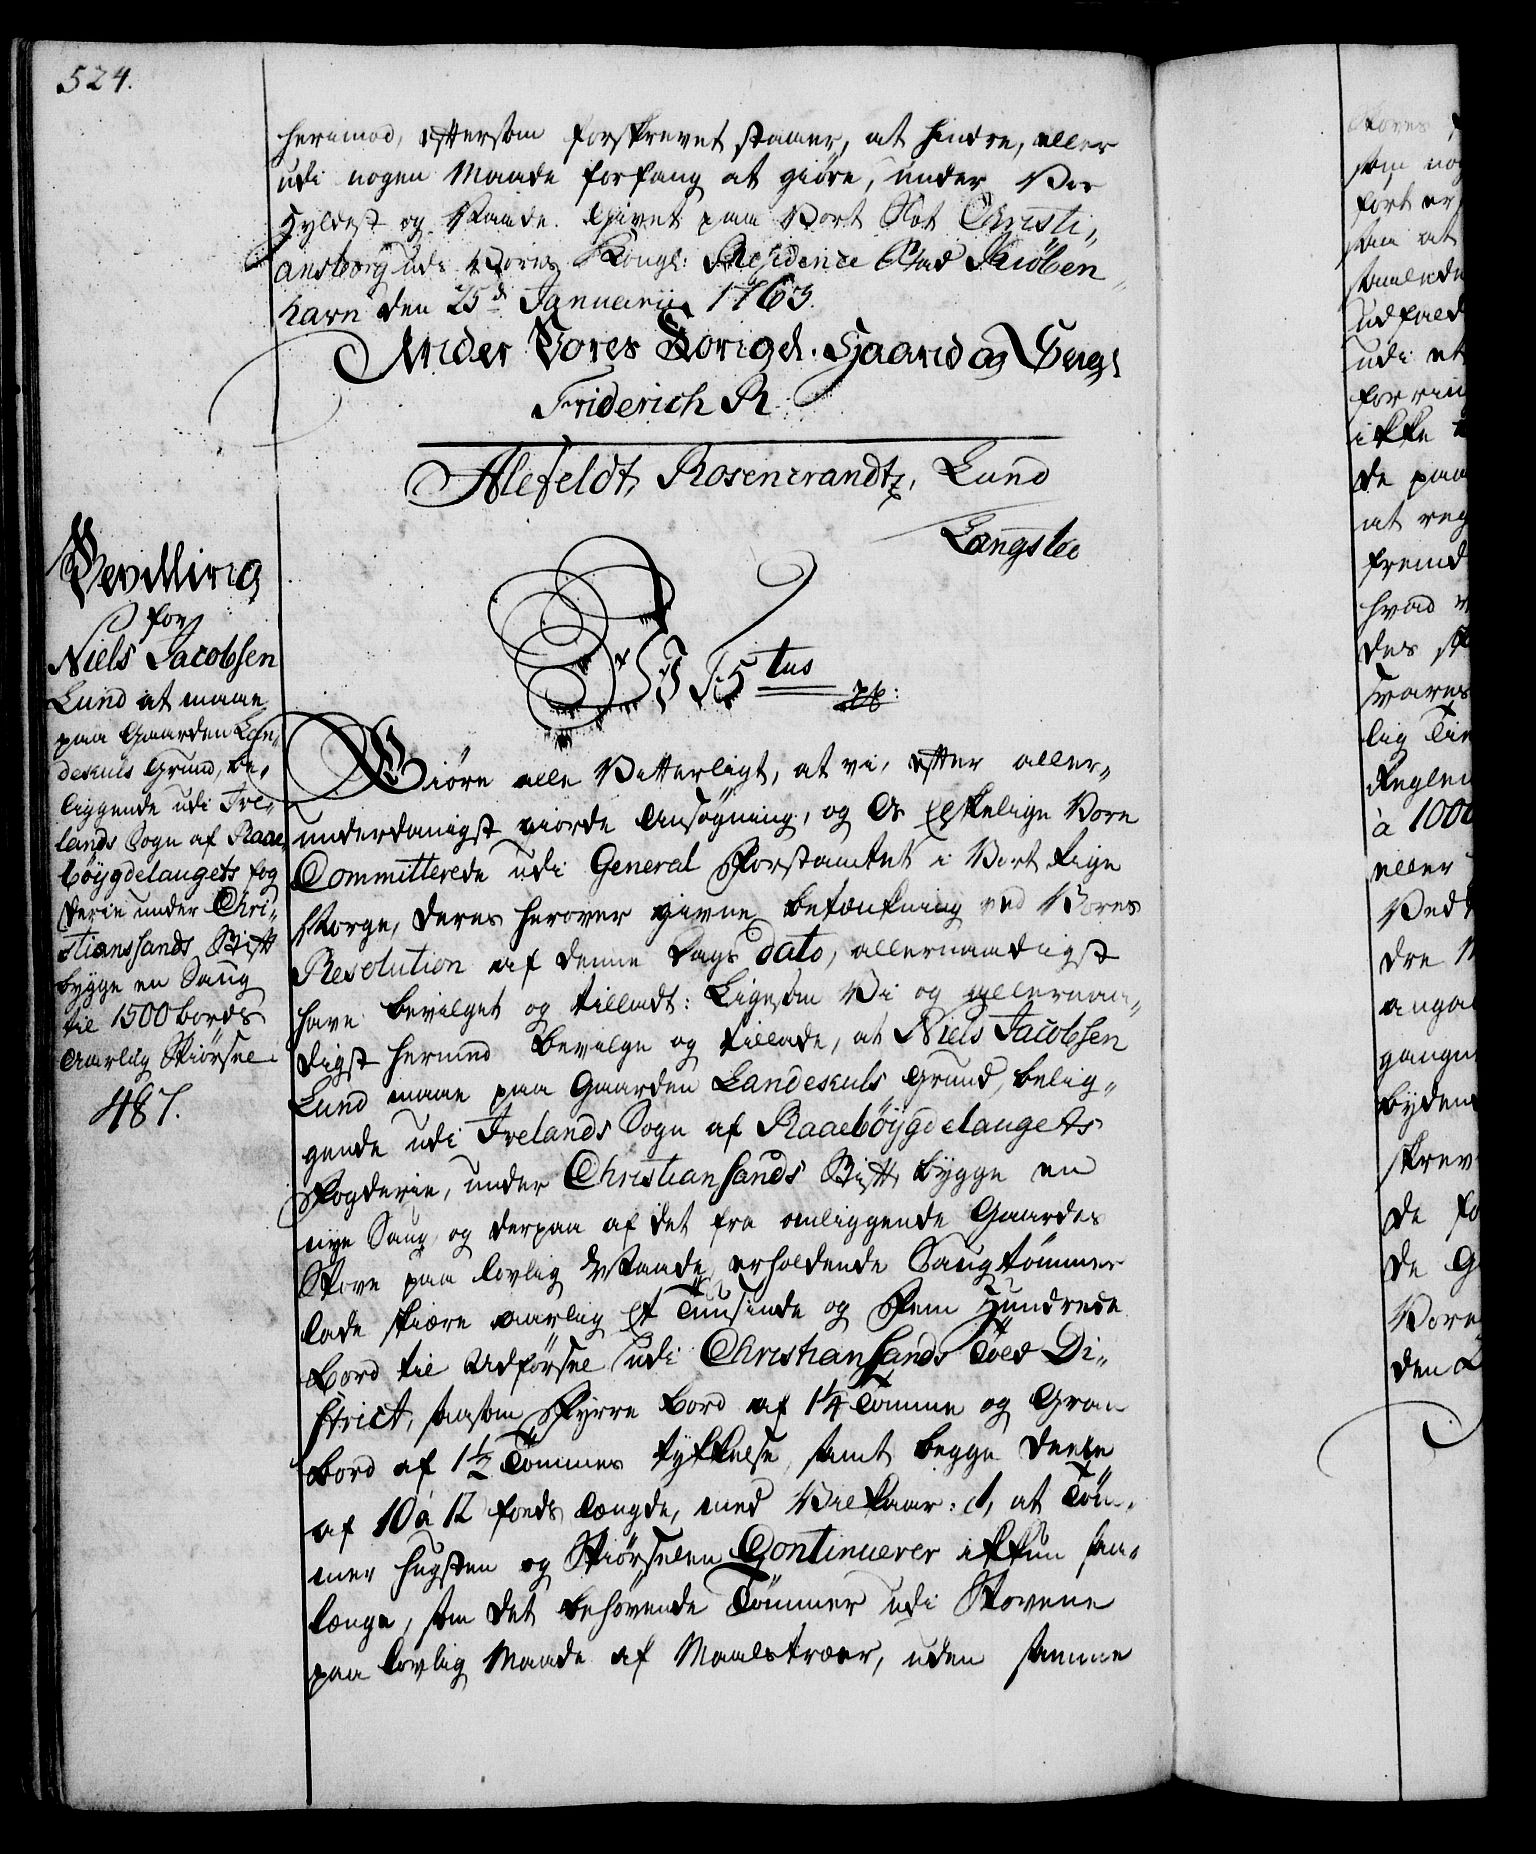 524.
herimod, eftersom forskrevet staaer, at hindre, eller
udi nogen Maade forfang at giöre, under Vor
Hyldest og Naade. Givet paa Vort Slot Christi„
ansborg udi Vores Kongl: Residence Stad Kiöben„
havn den 25de Januarii 1763.
Under Vores Kongel. Haand og Segl
Friderich R
Alefeldt, Rosencrandtz, Lund
Langsted
Bevilling
for
Niels Jacobsen
Lund at maae
paa Gaarden Lan„
deskuls Grund, be„
liggende udi Ive„
lands Sogn af Raae
böÿgdelaugets fog
derie under Chri„
stianssands Stift
bÿgge en Saug
til 1500 bords
Aarlig Skiörsel.
487.
Vi F 5tus
Giöre alle Vitterligt, at vi, efter aller„
underdanigst giorde Ansøgning, og Os Elskelige Vore
Committerede udi General Forstamtet i Vort Rige
Norge, deres herover givne betænkning ved Vores
Resolution af denne Dags dato, allernaadigst
have bevilget og tilladt: Ligesom Vi og allernaa„
digst hermed bevilge og tillade, at Niels Jacobsen
Lund maae paa Gaarden Landeskuls Grund, belig„
gende udi Ivelands Sogn af Raaeböÿgdelaugets
Fogderie, under Christiansands Stift, bÿgge en
nye Saug, og derpaa af det fra omliggende Gaardes
Skove paa lovlig Maade erholdende Saugtömmer
lade skiære aarlig Et Tusinde og Fem Hundrede
bord til Udförsel udi Christiansands Told Di„
strict, saasom Fÿrre bord af 1¼ Tomme og Gran
bord af 1½ Tommes tykkelse, samt begge deele
af 10 à 12 fods Længde, med Vilkaar: 1, at Töm„
mer hugsten og Skiörselen Continuerer ikkun saa„
længe, som det behövende Tömmer udi Skovene
paa lovlig Maade af Maalstræer, uden samme